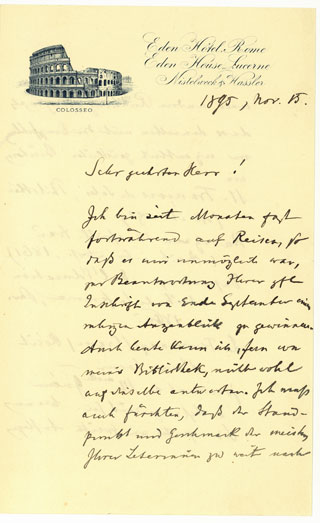 Eden Hôtel, Rome
Eden House, Lucerne
Nistelweck & Hassler
COLOSSEO
1895, Nov. 15.
Sehr geehrter Herr!
Ich bin seit Monaten fast
fortwährend auf Reisen, so
daß es mir unmöglich war,
zur Beantwortung Ihrer gfl
Zuschrift von Ende September einen
ruhigen Augenblick zu gewinnen.
Auch heute kann ich, fern von
meiner Bibliothek, nicht wohl
auf dieselbe antworten. Ich muß
auch fürchten, daß der Stand-
punkt und Geschmack der meisten
Ihrer Leserinnen zu weit nach